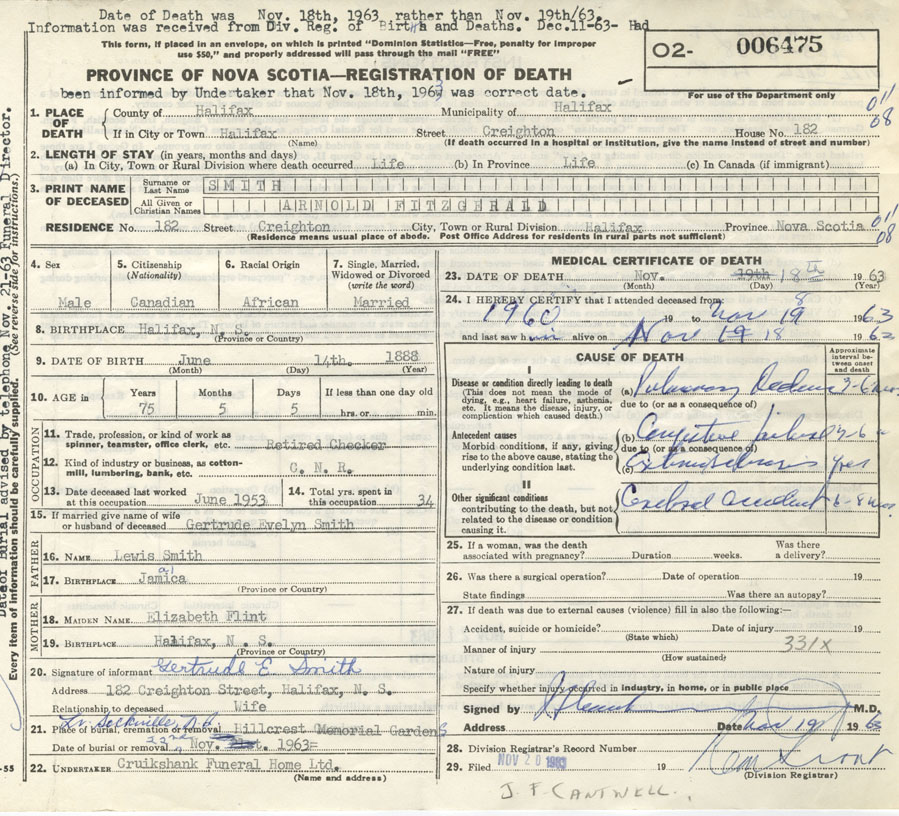 Date of Death was Nov. 18th, 1963 rather than Nov. 19th/63.
Information was received from Div. Reg. of Births and Deaths. Dec.11-63- Had
This form, if placed in an envelope, on which is printed "Dominion Statistics—Free, penalty for improper
use $50," and properly addressed will pass through the mail "FREE"
O2- 006475
PROVINCE OF NOVA SCOTIA—REGISTRATION OF DEATH
been informed by Undertaker that Nov. 18th, 1963 was correct date.
For use of the Department only
1. PLACE OF DEATH County of Halifax Municipality of Halifax 011/08
If in City or Town Halifax Street Creighton House No. 182
(Name) (If death occurred in a hospital or institution, give the name instead of street and number)
2. LENGTH OF STAY (in years, months and days)
(a) In City, Town or Rural Division where death occurred Life (b) In Province Life (c) In Canada (if immigrant)
3. PRINT NAME OF DECEASED Surname or Last Name SMITH
All Given or Christian Names ARNOLD FITZGERALD
RESIDENCE No. 182 Street Creighton City, Town or Rural Division Halifax Province Nova Scotia 011/08
(Residence means usual place of abode. Post Office Address for residents in rural parts not sufficient)
4. Sex 5. Citizenship (Nationality) 6. Racial Origin 7. Single, Married, Widowed or Divorced (write the word)
Male Canadian African Married
8. BIRTHPLACE Halifax, N. S.
(Province or Country)
9. DATE OF BIRTH June 14th. 1888
(Month) (Day) (Year)
10. AGE in Years Months Days If less than one day old
75 5 5 hrs. or min.
OCCUPATION
11. Trade, profession, or kind of work as spinner, teamster, office clerk, etc. Retired Checker
12. Kind of industry or business, as cotton-mill, lumbering, bank, etc. C. N. R.
13. Date deceased last worked at this occupation June 1953 14. Total yrs. spent in this occupation 34
15. If married give name of wife or husband of deceased Gertrude Evelyn Smith
FATHER
16. NAME Lewis Smith
17. BIRTHPLACE Jamica
(Province or Country)
MOTHER
18. MAIDEN NAME Elizabeth Flint
19. BIRTHPLACE Halifax, N. S.
(Province or Country)
20. Signature of informant Gertrude E. Smith
Address 182 Creighton Street, Halifax, N. S.
Relationship to deceased Wife
Lr. Sackville, N.S.
21. Place of burial, cremation or removal Hillcrest Memorial Gardens
Date of burial or removal 22nd Nov. 1963
22. UNDERTAKER Cruikshank Funeral Home Ltd.
(Name and address)
MEDICAL CERTIFICATE OF DEATH
23. DATE OF DEATH Nov. 19th 18th 1963
(Month) (Day) (Year)
24. I HEREBY CERTIFY that I attended deceased from
1960 19 to Nov 19 8 1963
and last saw him alive on Nov 19 18 1963
CAUSE OF DEATH
Approximate interval between onset and death
I
Disease or condition directly leading to death
(This does not mean the mode of dying, e.g., heart failure, asthenia, etc. It means the disease, injury, or complication which caused death.)
(a) Pulmonary
due to (or as a consequence of)
Antecedent causes
Morbid conditions, if any, giving rise to the above cause, stating the underlying condition last.
(b) Congestive failure
due to (or as a consequence of)
(c)
II
Other significant conditions
contributing to the death, but not related to the disease or condition causing it.
Cerebral accident
25. If a woman, was the death associated with pregnancy? Duration weeks. Was there a delivery?
26. Was there a surgical operation? Date of operation 19
State findings Was there an autopsy?
27. If death was due to external causes (violence) fill in also the following:—
Accident, suicide or homicide? Date of injury 19
(State which)
Manner of injury 331X
(How sustained)
Nature of injury
Specify whether injury occurred in industry, in home, or in public place
Signed by M.D.
Address Date Nov 19 1963
28. Division Registrar's Record Number
29. Filed NOV 20 1963 19
(Division Registrar)
J. F. CANTWELL.
Date of Burial advised by telephone Nov. 21-63 Funeral Director.
Every item of information should be carefully supplied. (See reverse side for instructions.)
-55